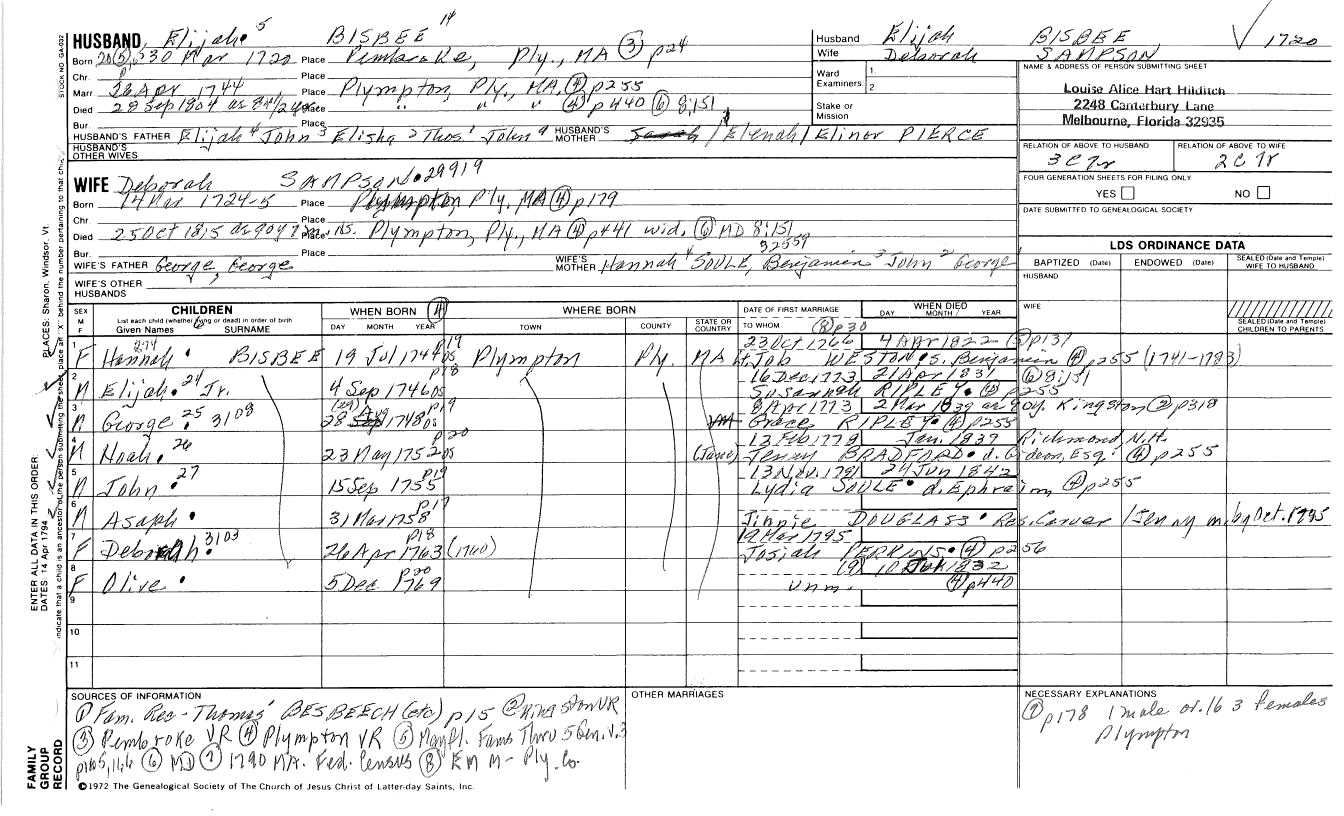 HUSBAND Elijah 5 BISBEE 14
Born 20 (5), 30 Mar 1720 Place Pembroke, Ply., MA (3) p24
Chr. Place
Marr 26 Apr 1744 Place Plympton, Ply., MA, (4) p255
Died 28 Sep 1804 Place " " " (4) p440 (6) 8:151
Bur Place
HUSBAND'S FATHER Elijah 4 John 3 Elisha 2 Thos 1 John 9 HUSBAND'S MOTHER Sarah / Elenah / Elinor PIERCE
HUSBAND'S OTHER WIVES
WIFE Deborah SAMPSON 29919
Born 14 Mar 1724-5 Place Plympton, Ply, MA (4) p179
Chr Place
Died 25 Oct 1815 Place Plympton, Ply., MA (4) p441 wid. (6) MD 8:151
Bur. 32559
WIFE'S FATHER George, George WIFE'S MOTHER Hannah 4 SOULE, Benjamin 3 John 2 George
WIFE'S OTHER HUSBANDS
Husband Elijah BISBEE 1720
Wife Deborah SAMPSON
Ward 1.
Examiners 2
Stake or Mission
NAME & ADDRESS OF PERSON SUBMITTING SHEET
Louise Alice Hart Hilditch
2248 Canterbury Lane
Melbourne, Florida 32935
RELATION OF ABOVE TO HUSBAND RELATION OF ABOVE TO WIFE
3C7r 2C7r
FOUR GENERATION SHEETS FOR FILING ONLY
YES NO
DATE SUBMITTED TO GENEALOGICAL SOCIETY
LDS ORDINANCE DATA
BAPTIZED (Date) ENDOWED (Date) SEALED (Date and Temple) WIFE TO HUSBAND
HUSBAND
WIFE
SEALED (Date and Temple) CHILDREN TO PARENTS
SEX M F CHILDREN
List each child (whether living or dead) in order of birth
Given Names SURNAME
WHEN BORN (4)
DAY MONTH YEAR
WHERE BORN
TOWN COUNTY STATE OR COUNTRY
DATE OF FIRST MARRIAGE
TO WHOM (8) p30
WHEN DIED
DAY MONTH YEAR
1 F Hannah 274 BISBEE 19 Jul 1744 OS p19 Plympton Ply. MA 23 Oct 1766 4 Apr 1822 p137
Lt. Job WESTON s. Benjamin (4) p255 (1741-1783)
2 M Elijah 24 Jr. 4 Sep 1746 OS p18 16 Dec 1773 21 Apr 1831 (6) 8:151
Susannah RIPLEY (4) p255
3 M George 25 3108 28 (29) Sep Aug 1748 OS p19 8 Apr 1773 2 Mar 1839 Kingston (2) p318
Grace RIPLEY (4) p255
4 M Noah 26 23 May 1752 OS p20 12 Feb 1778 Jan. 1837 Richmond N.H.
(Jane) Jenny BRADFORD d. Gideon, Esq. (4) p255
5 M John 27 15 Sep 1755 p19 13 Nov. 1791 24 Jun 1842
Lydia SOULE d. Ephraim (4) p255
6 M Asaph 31 Mar 1758 p17
Jinnie DOUGLASS Res. Carver / Jenny m. by Oct. 1795
7 F Deborah 3103 26 Apr 1763 (1760) p18 19 Mar 1795
Josiah PERKINS (4) p256
8 F Olive 5 Dec 1769 p20 (9) 10 1832
Unm. (4) p440
9
10
11
SOURCES OF INFORMATION
(1) Fam. Rec - Thomas 1 BESBEECH (etc) p15 (2) Kingston VR
(3) Pembroke VR (4) Plympton VR (5) Mayfl. Fams Thru 5 Gen. v.3
p165, 166 (6) MD (7) 1790 MA. Fed. Census (8) EM M - Ply. Co.
OTHER MARRIAGES
NECESSARY EXPLANATIONS
(7) p178 1 male ov. 16 3 females
Plympton
©1972 The Genealogical Society of The Church of Jesus Christ of Latter-day Saints, Inc.
STOCK NO. GA-032
PLACES: Sharon, Windsor, Vt.
ENTER ALL DATA IN THIS ORDER
DATES: 14 Apr 1794
FAMILY GROUP RECORD